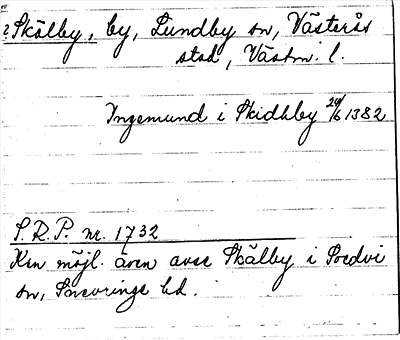 ? Skälby, by, Lundby sn, Västerås
stad, Västm. l.
Ingemund i Skidhby 29/6 1382
S.R.P. nr. 1732
Kan möjl. även avse Skälby i Svedvi
sn, Snevringe hd.